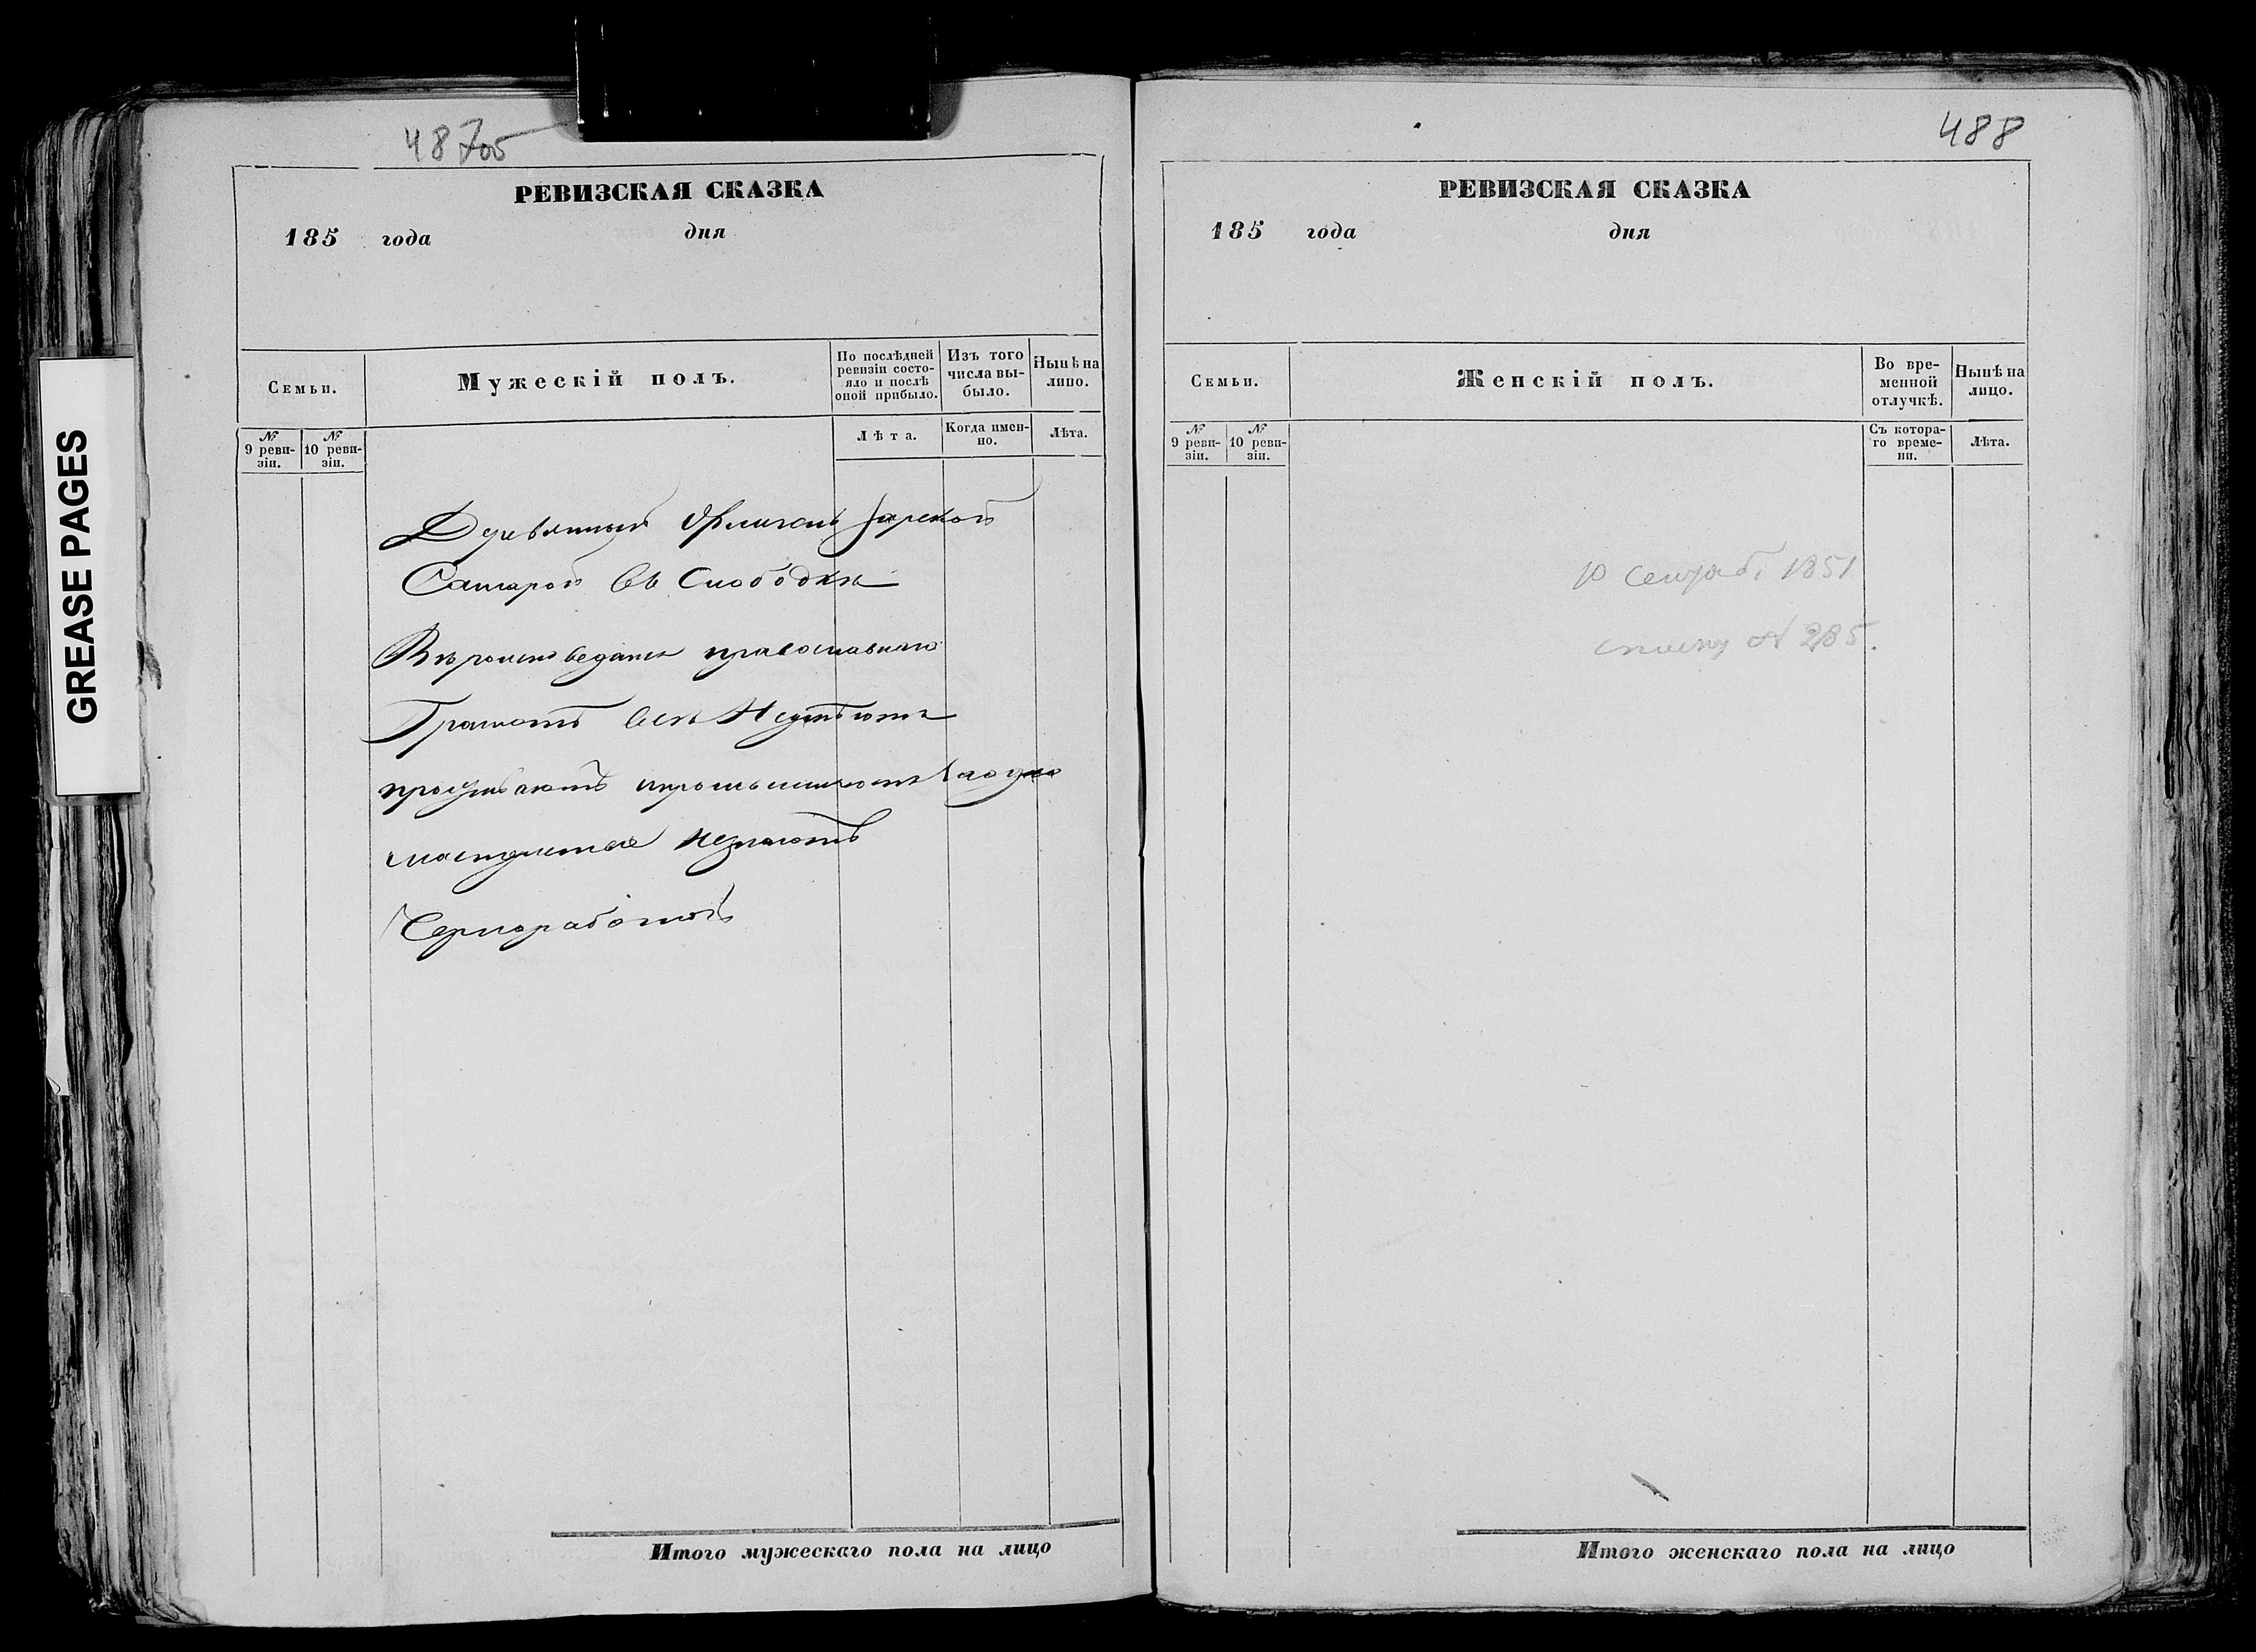 GREASE PAGES
487об
РЕВИЗСКАЯ СКАЗКА
185 года дня
Семьи.
Мужескій полъ.
По послѣдней ревизіи состояло и послѣ оной прибыло.
Изъ того числа выбыло.
Нынѣ на лицо.
№ 9 ревизіи.
№ 10 ревизіи.
Лѣта.
Когда именно.
Лѣта.
Деревянный
въ Слободке
Вероисповеданія православнаго
Грамотѣ всѣ Неумѣютъ
незнаютъ
Чернорабочій
Итого мужескаго пола на лицо
488
РЕВИЗСКАЯ СКАЗКА
185 года дня
Семьи.
Женскій полъ.
Во временной отлучкѣ.
Нынѣ на лицо.
№ 9 ревизіи.
№ 10 ревизіи.
Съ котораго времени.
Лѣта.
10 Сентяб. 1851
№ 285.
Итого женскаго пола на лицо